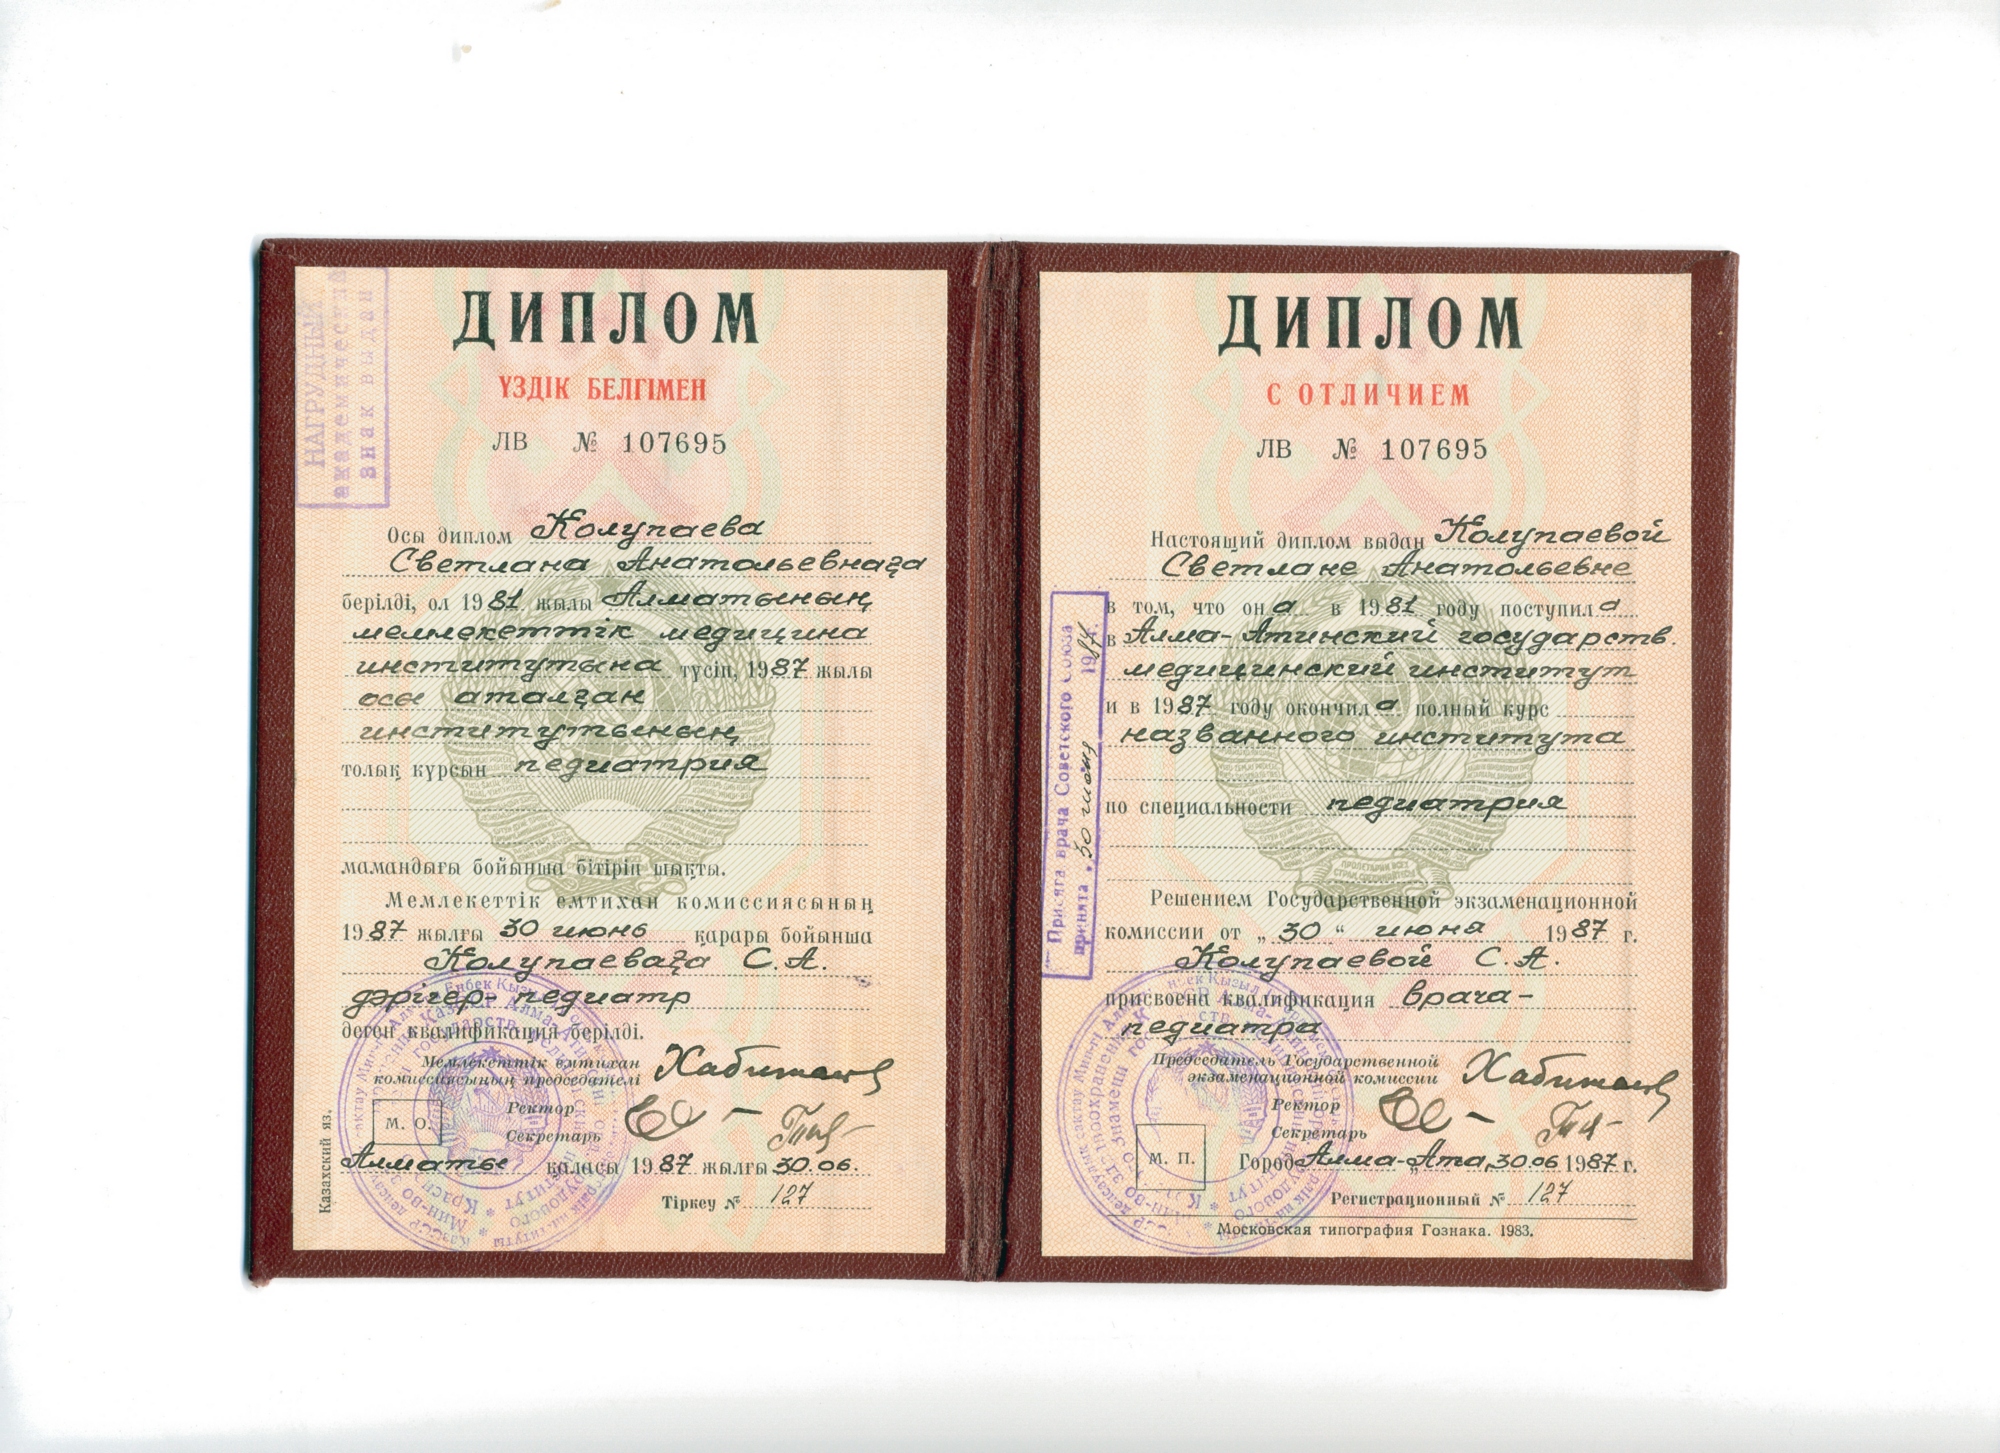 НАГРУДНЫЙ
академический
знак выдан
ДИПЛОМ
ҮЗДІК БЕЛГІМЕН
ЛВ № 107695
Осы диплом Колупаева
Светлана Анатольевнаға
берілді, ол 1981 жылы Алматының
мемлекеттік медицина
институтына түсіп, 1987 жылы
осы аталған
институтының
толық курсын педиатрия
мамандығы бойынша бітіріп шықты.
Мемлекеттік емтихан комиссиясының
1987 жылғы 30 июнь қарары бойынша
Колупаеваға С.А.
дәрігер-педиатр
деген квалификация берілді.
Мемлекеттік емтихан
комиссиясының председателі
Ректор
Секретарь
М. О.
Алматы қаласы 1987 жылғы 30.06.
Тіркеу № 127
Казахский яз.
ДИПЛОМ
С ОТЛИЧИЕМ
ЛВ № 107695
Настоящий диплом выдан Колупаевой
Светлане Анатольевне
в том, что она в 1981 году поступила
в Алма-Атинский государств.
медицинский институт
и в 1987 году окончила полный курс
названного института
по специальности педиатрия
Решением Государственной экзаменационной
комиссии от „30“ июня 1987 г.
Колупаевой С.А.
присвоена квалификация врача-
педиатра
Председатель Государственной
экзаменационной комиссии
Ректор
Секретарь
М. П.
Город Алма-Ата, 30.06 1987 г.
Регистрационный № 127
Московская типография Гознака. 1983.
Присяга врача Советского Союза
принята „30 июня 1987 г.